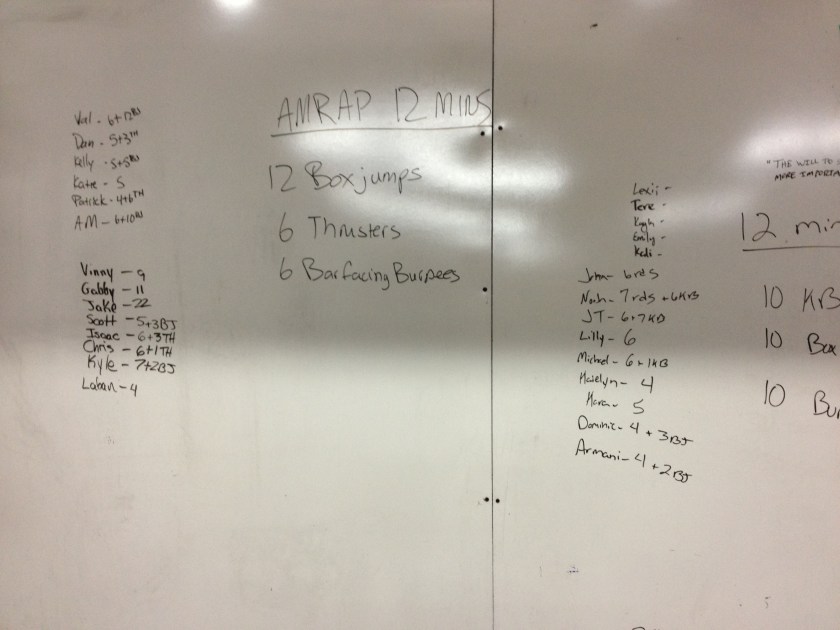 AMRAP 12 MINS
12 Box jumps
6 Thrusters
6 Bar facing Burpees
Dan - 5+3TH
Kelly - 5+5BJ
Katie - 5
Patrick - 4+6TH
AM - 6+10BJ
Vinny - 9
Gabby - 11
Jake - 22
Scott - 5+3BJ
Isaac - 6+3TH
Chris - 6+1TH
Kyle - 7+2BJ
Laban - 4
"THE WILL TO
MORE IMPORTA
12 min
10 KB
10 Box
10 Bur
Lexii -
Tere -
Emily -
Kedi -
John - 6rds
Noah - 7rds + 6KBS
JT - 6+7KB
Lilly - 6
Michael - 6+1KB
4
5
Dominic - 4 + 3BJ
Armani - 4 + 2BJ